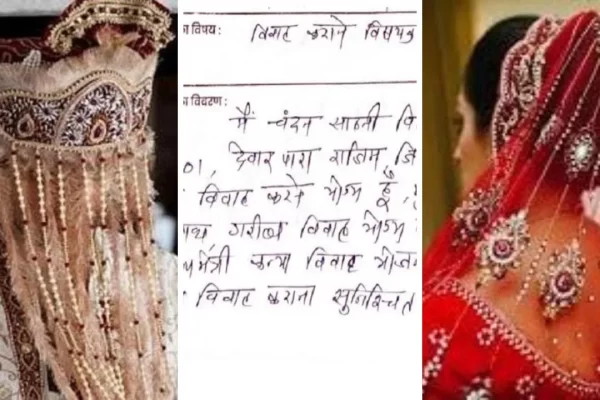 विषय:
विवाह कराने विषयक
विवरण:
मैं चंदन साहनी वि
01, देवार पारा राजिम, जि
विवाह करने योग्य हूँ,
गरीब विवाह योग्य
मंत्री कन्या विवाह योज
विवाह कराना सुनिश्चित